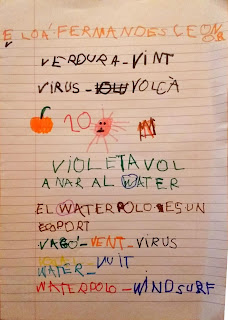 ELOÁ FERMANDES CEONOR
VERDURA-VINT
VIRUS-VOLCÀ
20
VIOLETA VOL
ANAR AL WATER
EL WATERPOLO ES UN
ESPORT
VAGÓ-VENT-VIRUS
WATER-VUIT
WATERPOLO-WINDSURF